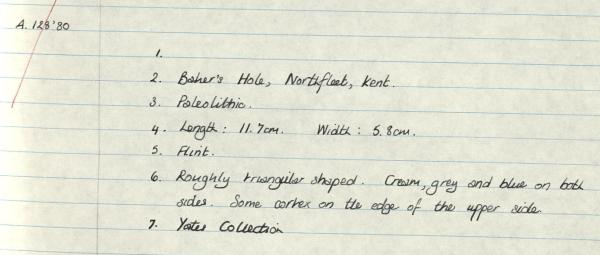 A. 128'80
1.
2. Baker's Hole, Northfleet, Kent.
3. Paleolithic.
4. Length: 11.7cm. Width: 5.8cm.
5. Flint.
6. Roughly triangular shaped. Cream, grey and blue on both
sides. Some cortex on the edge of the upper side.
7. Yates Collection